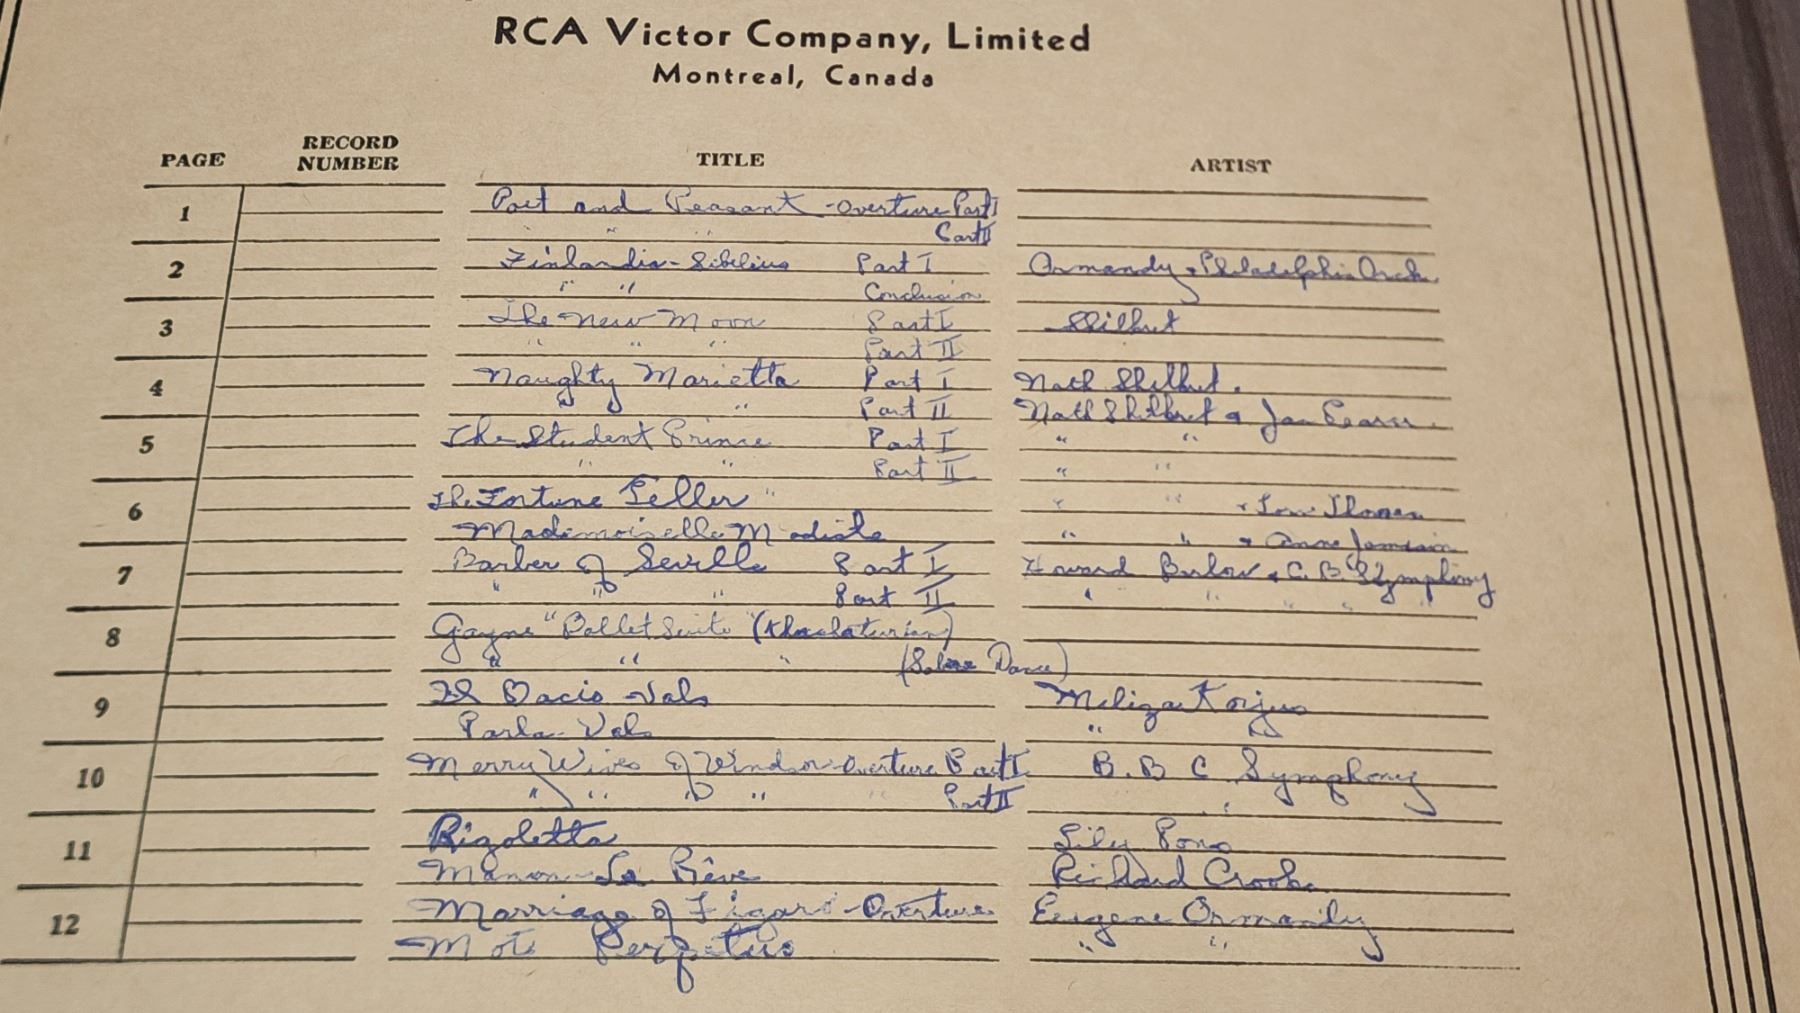 RCA Victor Company, Limited
Montreal, Canada
PAGE RECORD NUMBER TITLE ARTIST
1 Poet and Peasant - Overture Part I
" " " Part II
2 Finlandia - Sibelius Part I Ormandy & Philadelphia Orch.
" " Conclusion
3 The New Moon Part I Shilkret
" " " Part II
4 Naughty Marietta Part I Nath Shilkret.
" " Part II Nath Shilkret & Jan Peerce.
5 The Student Prince Part I " "
" " Part II " "
6 The Fortune Teller " " " &
Mademoiselle Modiste " " & Anne Jamison
7 Barber of Seville Part I Howard Barlow & C.B.S Symphony
" " " Part II " " " " "
8 Gayne "Ballet Suite" (Khachaturian)
" " " (Sabre Dance)
9 Il Bacio - Vals Miliza Korjus
Parla - Vals " "
10 Merry Wives of Windsor - Overture Part I B.B C Symphony
" " " " " Part II "
11 Rigoletto Lily Pons
Manon - La Rêve Richard Crooks
12 Marriage of Figaro - Overture Eugene Ormandy
Moto Perpetuo " "